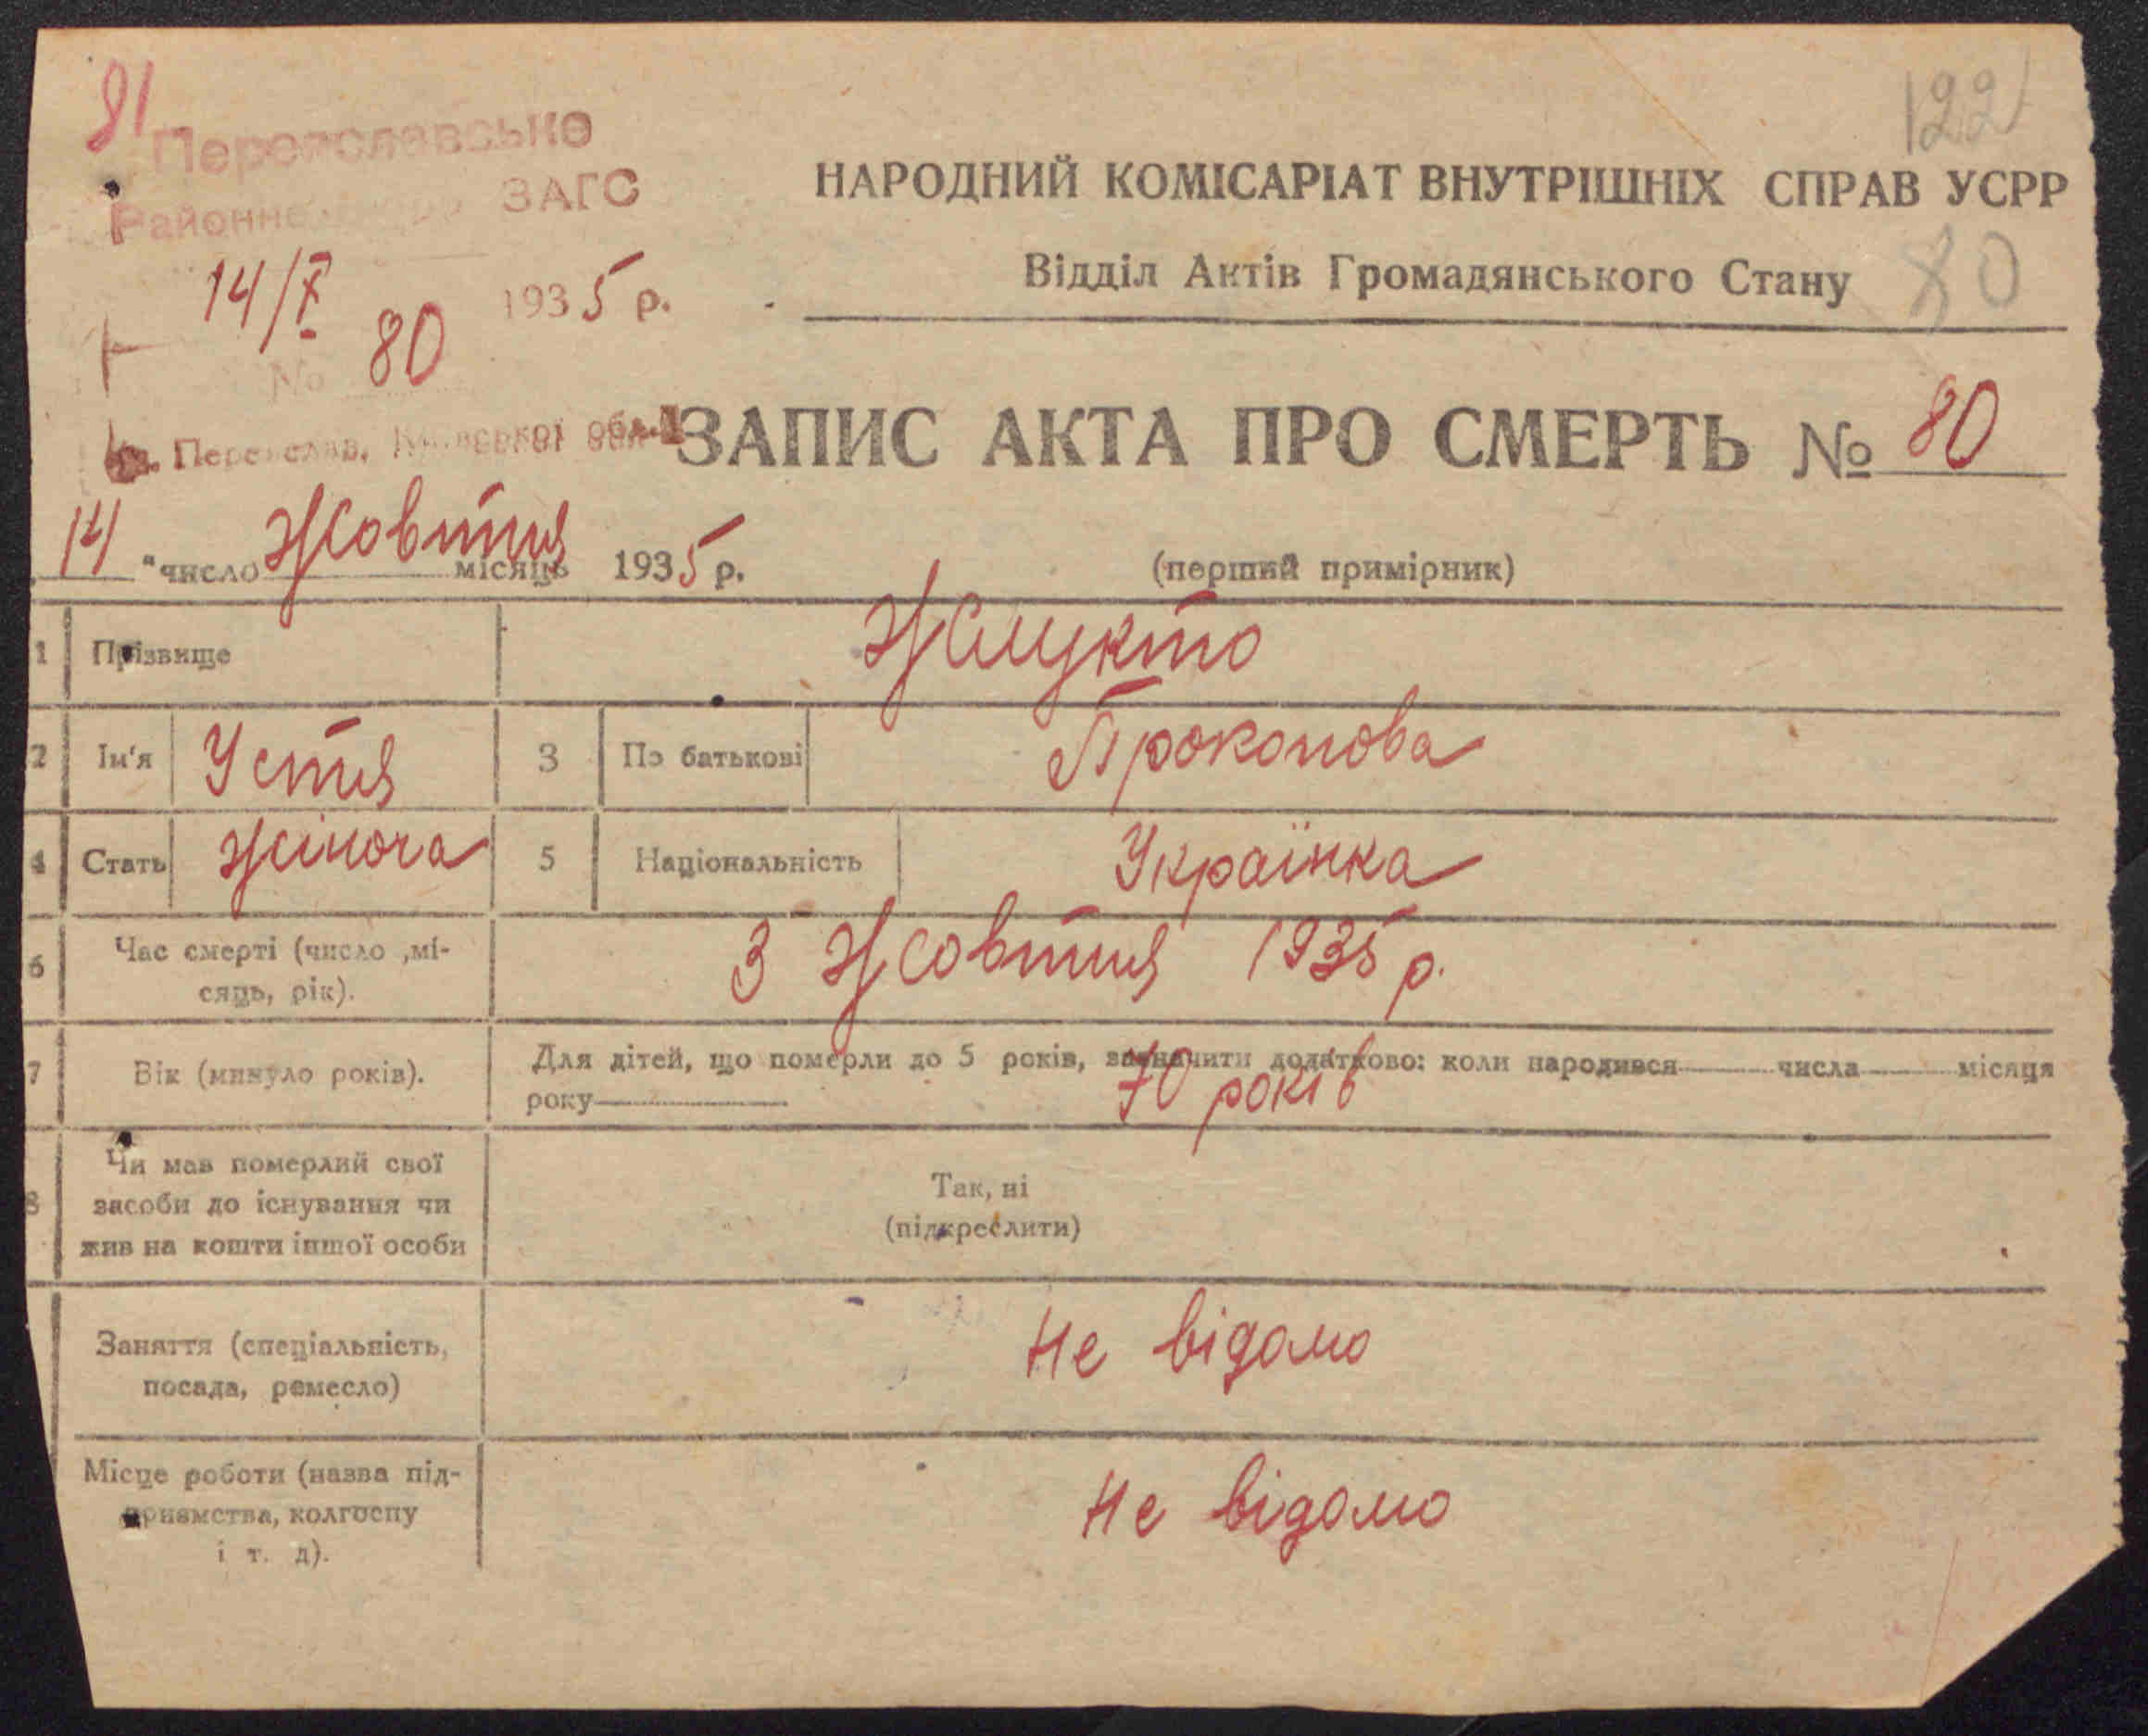 81
122
Переяславське
Районне бюро ЗАГС
НАРОДНИЙ КОМІСАРІАТ ВНУТРІШНІХ СПРАВ УСРР
Відділ Актів Громадянського Стану 80
14/X 1935 р.
№ 80
м. Переяслав, Київської обл.
ЗАПИС АКТА ПРО СМЕРТЬ № 80
14 "число Жовтня місяць 1935 р.
(перший примірник)
1 Прізвище Жлукто
2 Ім'я Устя 3 По батькові Прокопова
4 Стать Жіноча 5 Національність Українка
6 Час смерті (число ,мі-
сяць, рік). 3 Жовтня 1935 р.
7 Вік (минуло років). Для дітей, що померли до 5 років, зазначити додатково: коли народився числа місяця
року 70 років
8 Чи мав померлий свої
засоби до існування чи
жив на кошти іншої особи
Так, ні
(підкреслити)
Заняття (спеціальність,
посада, ремесло)
Не відомо
Місце роботи (назва під-
приємства, колгоспу
і т. д).
Не відомо